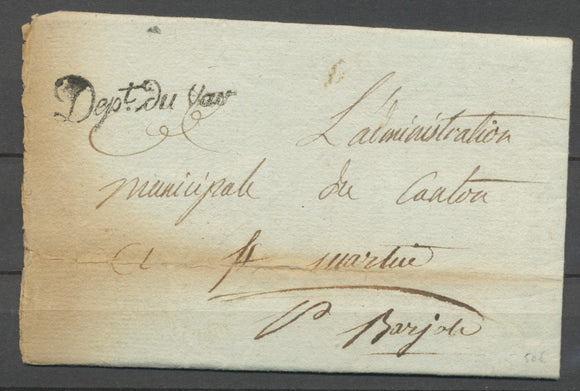 Dept. du Var
L'administration
municipale du Canton
St martin
P Barjols
50E